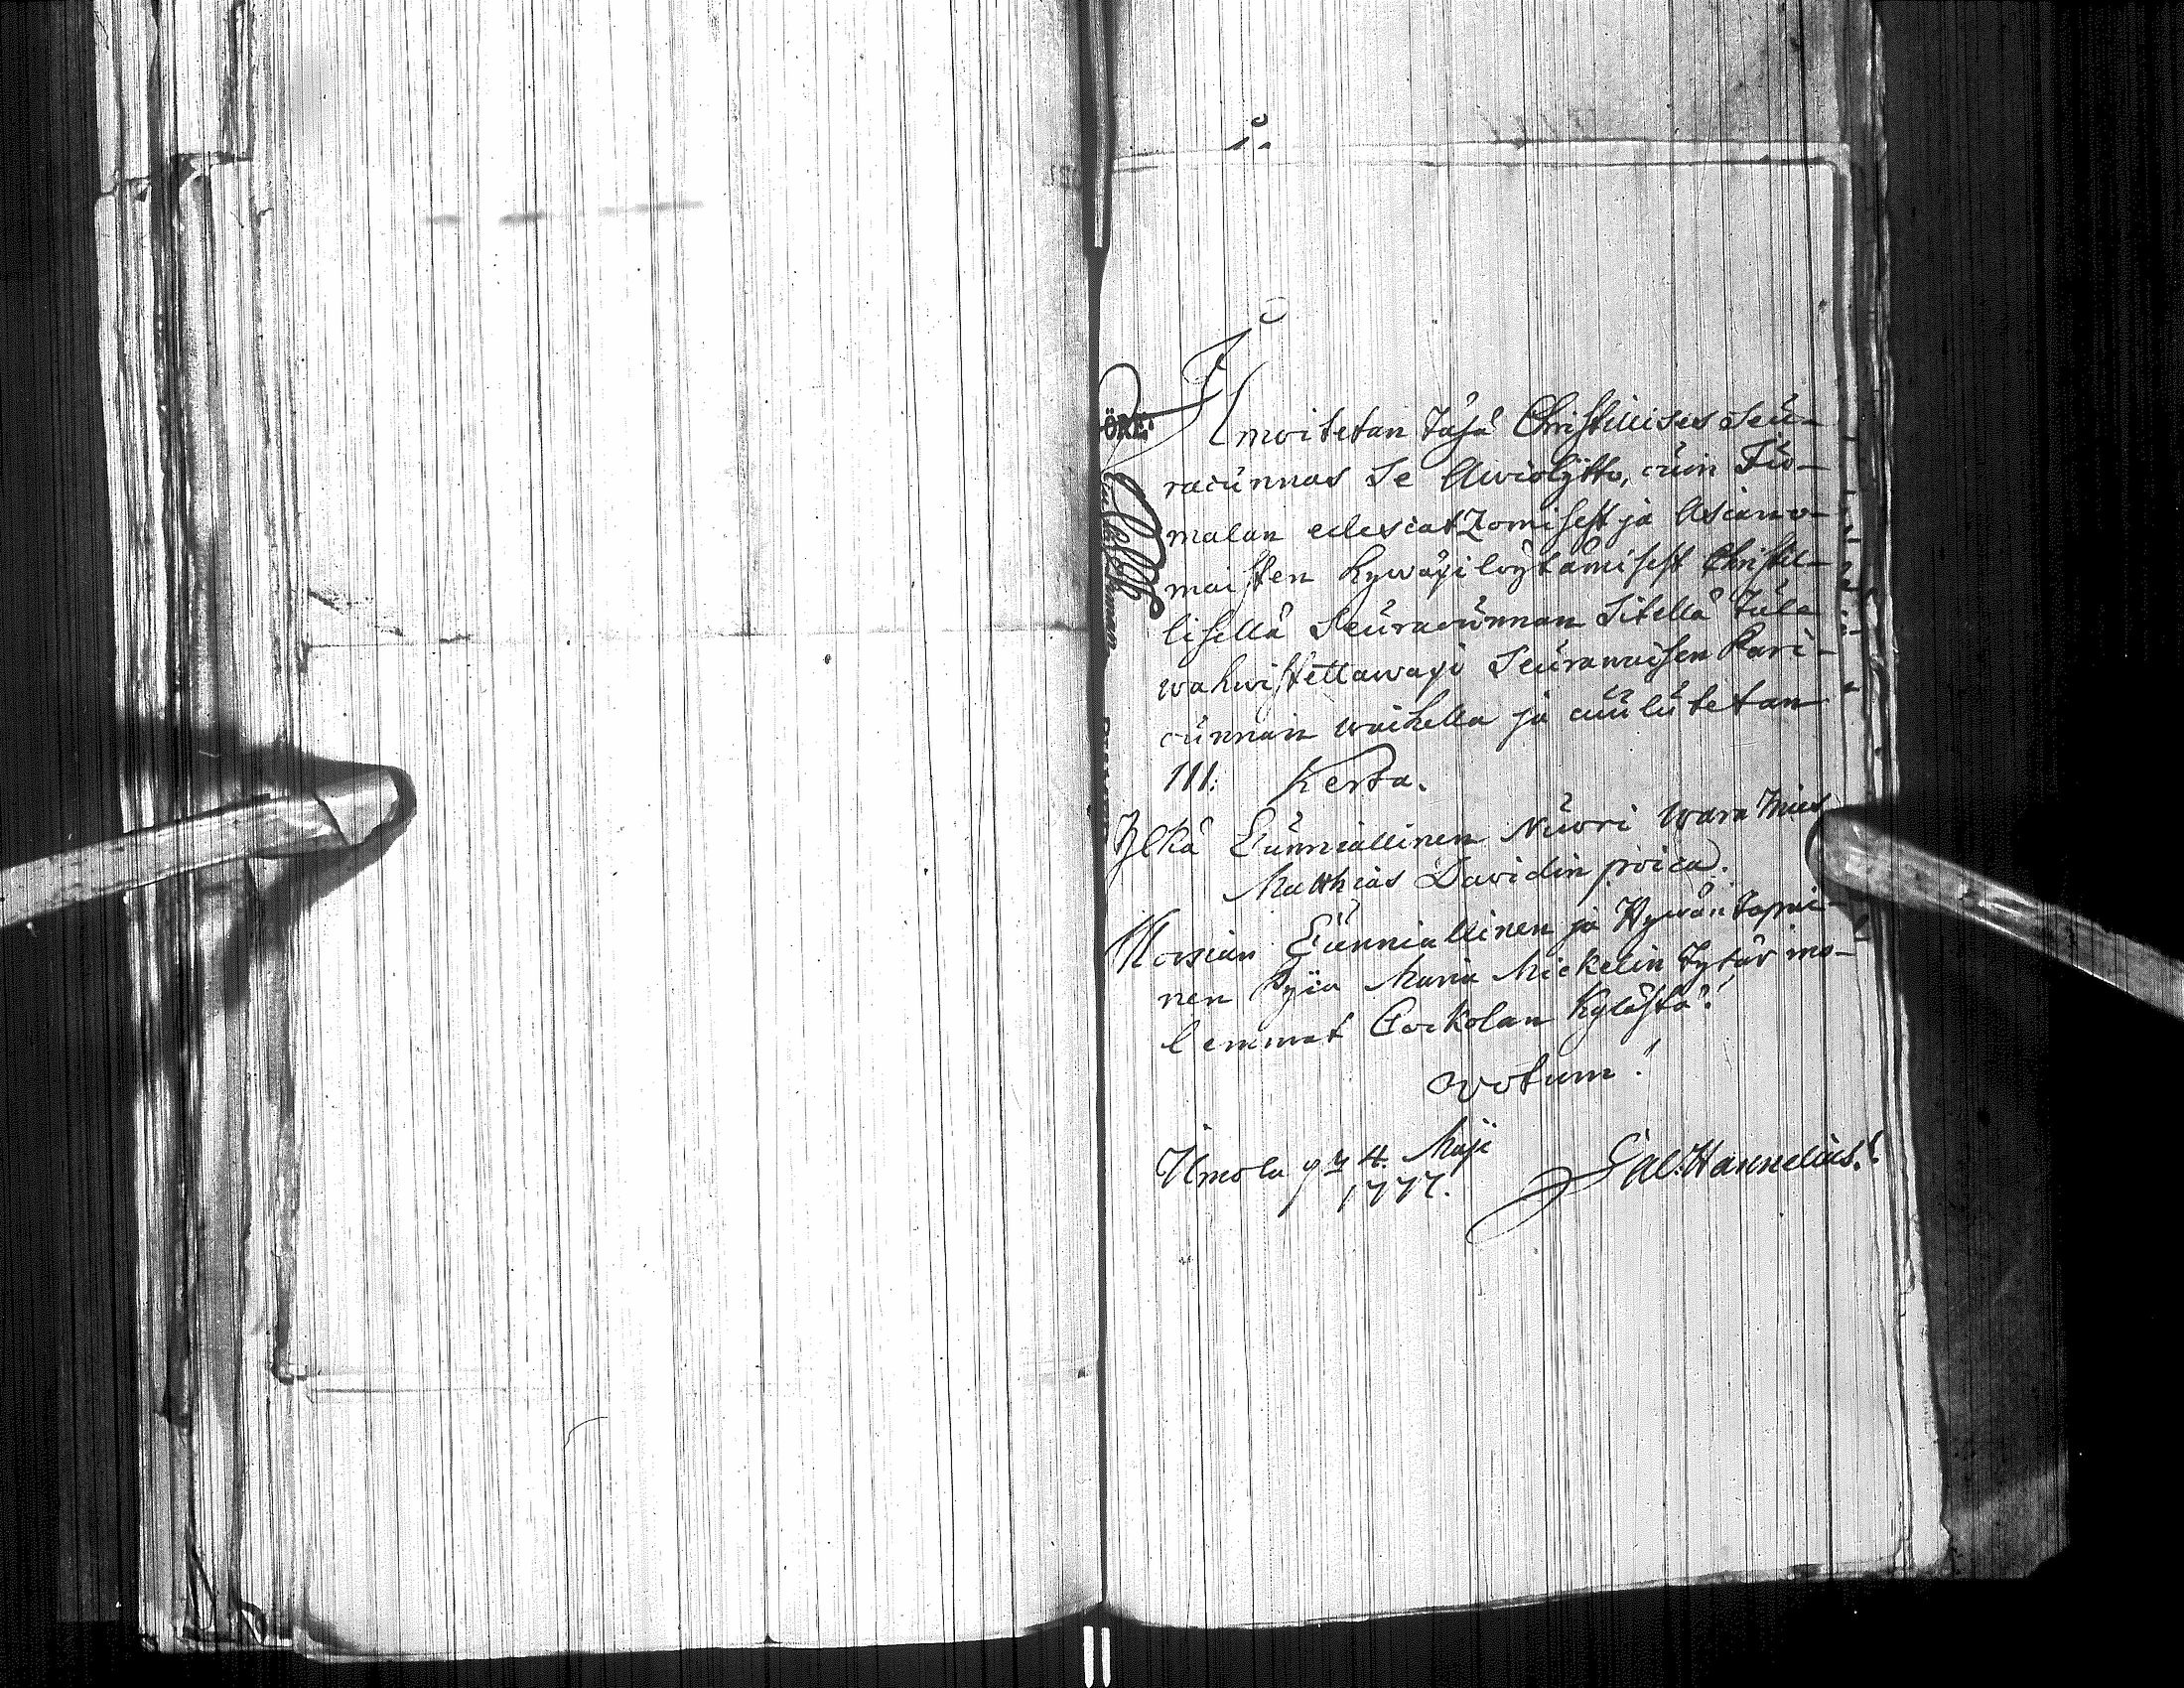 1:o
Ilmoitetan täsä Christillises Seu-
racunnas Se Aviolijtto, cuin Ju-
malan edescatzomisest ja Asiano-
maisten hywäxi löytämisest Christil-
lisellä Seuracunnan Sitellä tule
wahwistettawaxi Seurawaisen Pari-
cunnan waihella ja cuulutetan
III: Kerta.
Ylkä Cunniallinen Nuori wara Mies
Matthias Davidin poica.
Morsian Cunniallinen ja Hywäntapai-
nen Pyia Maria Mickelin Tytär mo-
lemmat Cockolan Kylästä!
votum!
Ilmola 4. Maji
1777.
Hannelius.
ÖRE.